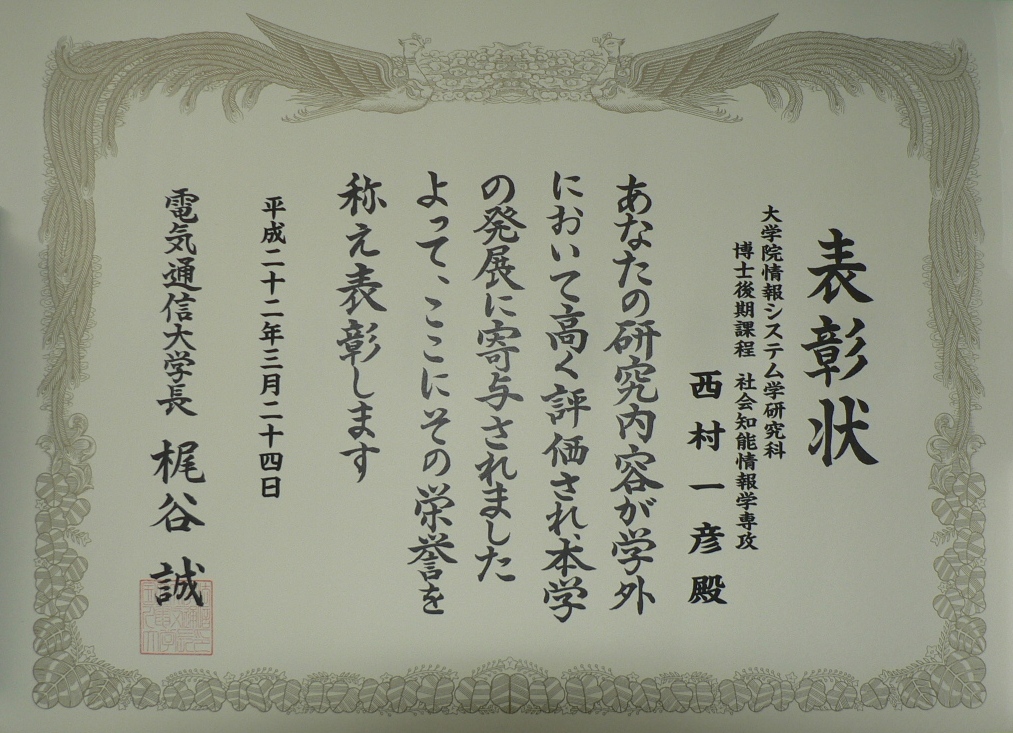 表彰状
大学院情報システム学研究科
博士後期課程 社会知能情報学専攻
西村一彦殿
あなたの研究内容が学外
において高く評価され、本学
の発展に寄与されました
よって、ここにその栄誉を
称え表彰します
平成二十二年三月二十四日
電気通信大学長 梶谷誠